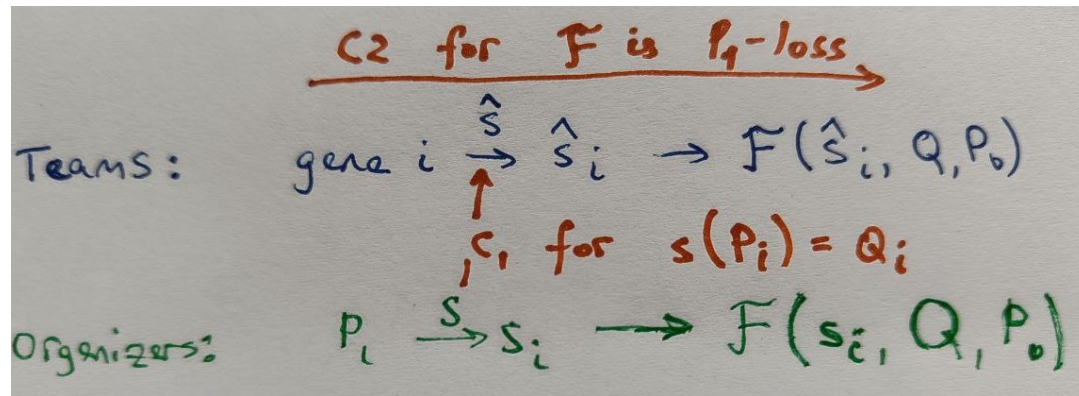 C2 for F is P₁-loss
Teams: gene i →^ŝ ŝᵢ → F(ŝᵢ, Q, P₀)
C₁ for s(Pᵢ) = Qᵢ
Organizers: Pᵢ →^s sᵢ → F(sᵢ, Q, P₀)